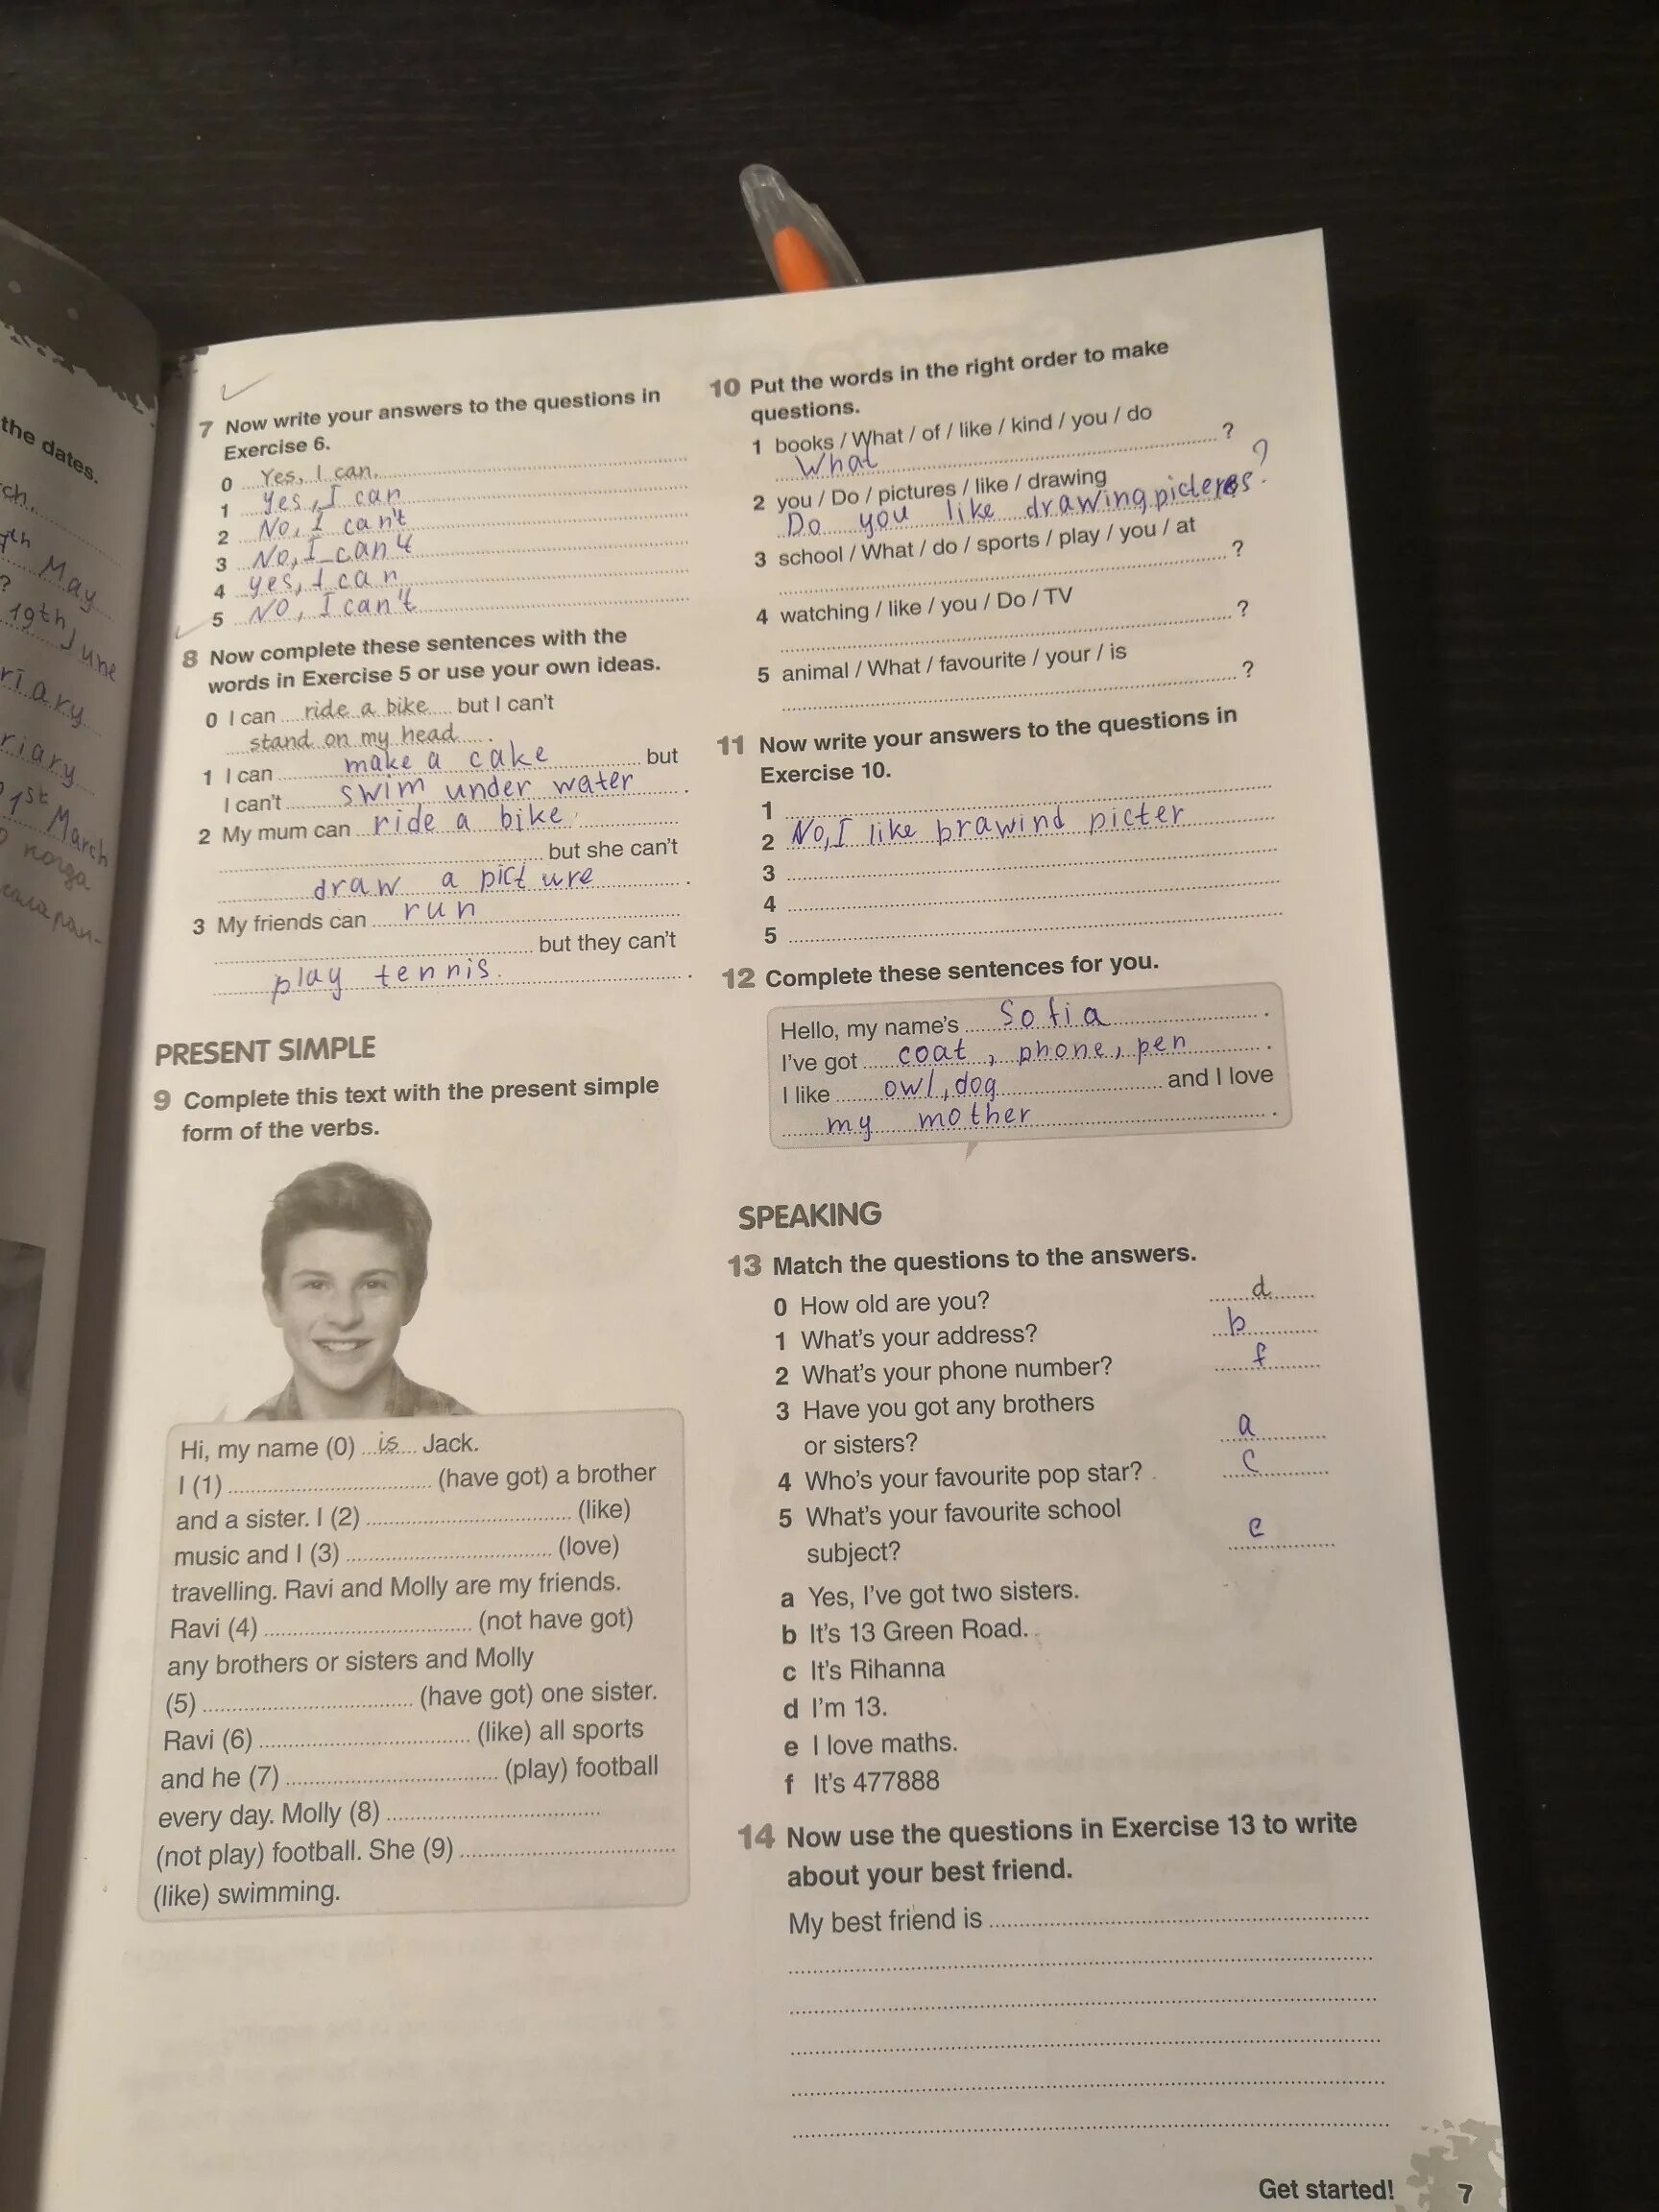 the dates.
ch.
7th May
?
19th June
riary
riary
1st March
когда
7 Now write your answers to the questions in
Exercise 6.
0 Yes, I can.
1 yes, I can
2 No, I can't
3 No, I can't
4 yes, I can
5 NO, I can't
8 Now complete these sentences with the
words in Exercise 5 or use your own ideas.
0 I can ride a bike but I can't
stand on my head.
1 I can make a cake but
I can't swim under water.
2 My mum can ride a bike
but she can't
draw a picture.
3 My friends can run
but they can't
play tennis.
PRESENT SIMPLE
9 Complete this text with the present simple
form of the verbs.
Hi, my name (0) is Jack.
I (1) (have got) a brother
and a sister. I (2) (like)
music and I (3) (love)
travelling. Ravi and Molly are my friends.
Ravi (4) (not have got)
any brothers or sisters and Molly
(5) (have got) one sister.
Ravi (6) (like) all sports
and he (7) (play) football
every day. Molly (8)
(not play) football. She (9)
(like) swimming.
10 Put the words in the right order to make
questions.
1 books / What / of / like / kind / you / do
What ?
2 you / Do / pictures / like / drawing
Do you like drawing picteres. ?
3 school / What / do / sports / play / you / at
?
4 watching / like / you / Do / TV
?
5 animal / What / favourite / your / is
?
11 Now write your answers to the questions in
Exercise 10.
1
2 No, I like brawind picter
3
4
5
12 Complete these sentences for you.
Hello, my name's Sofia.
I've got coat, phone, pen.
I like owl, dog and I love
my mother.
SPEAKING
13 Match the questions to the answers.
0 How old are you? d
1 What's your address? b
2 What's your phone number? f
3 Have you got any brothers
or sisters? a
4 Who's your favourite pop star? c
5 What's your favourite school
subject? e
a Yes, I've got two sisters.
b It's 13 Green Road.
c It's Rihanna
d I'm 13.
e I love maths.
f It's 477888
14 Now use the questions in Exercise 13 to write
about your best friend.
My best friend is
Get started! 7